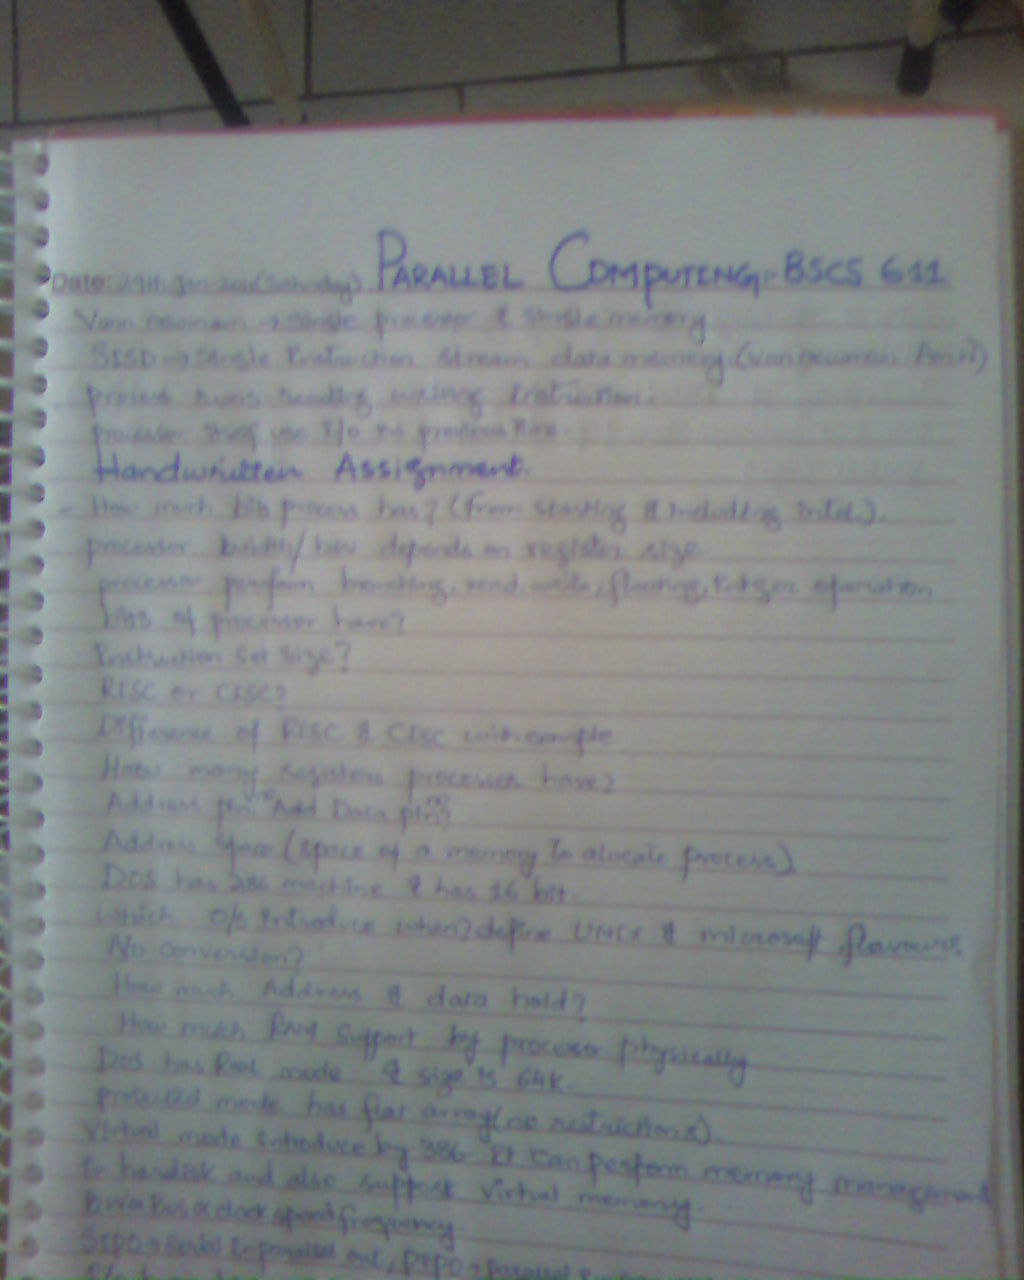 PARALLEL COMPUTING:- BSCS 611
Date: 29th Jan (Saturday)
Vonn neuman → single processor & single memory
SISD → Single Instruction Stream data memory (Von
process runs reading writing Instruction.
processor itself use I/o
Handwritten Assignment.
- How much bits process has? (from starting & Including Intel).
processor buldth/ depends on register size.
processor perform branching, read, write, floating, Integer operation
bits of processor have?
Instruction set size?
RISC or CISC?
Difference of RISC & CISC with example
How many registers processor have?
Address pin Add Data pin?
Address space (space of a memory to alocate process)
DOS has 286 machine & has 16 bit.
which O/S Introduce when? define UNIX & microsoft flavours.
No conversion?
How much Address & data hold?
How much RAM Support by processor physically
DOS has Real mode & size is 64k.
protected mode has flat array (no restrictions).
Virtual mode introduce by 386 It can perform memory management
In hardisk and also support virtual memory.
Bus clock speed frequency.
SIPO → Serial In parallel out, PIPO → parallel